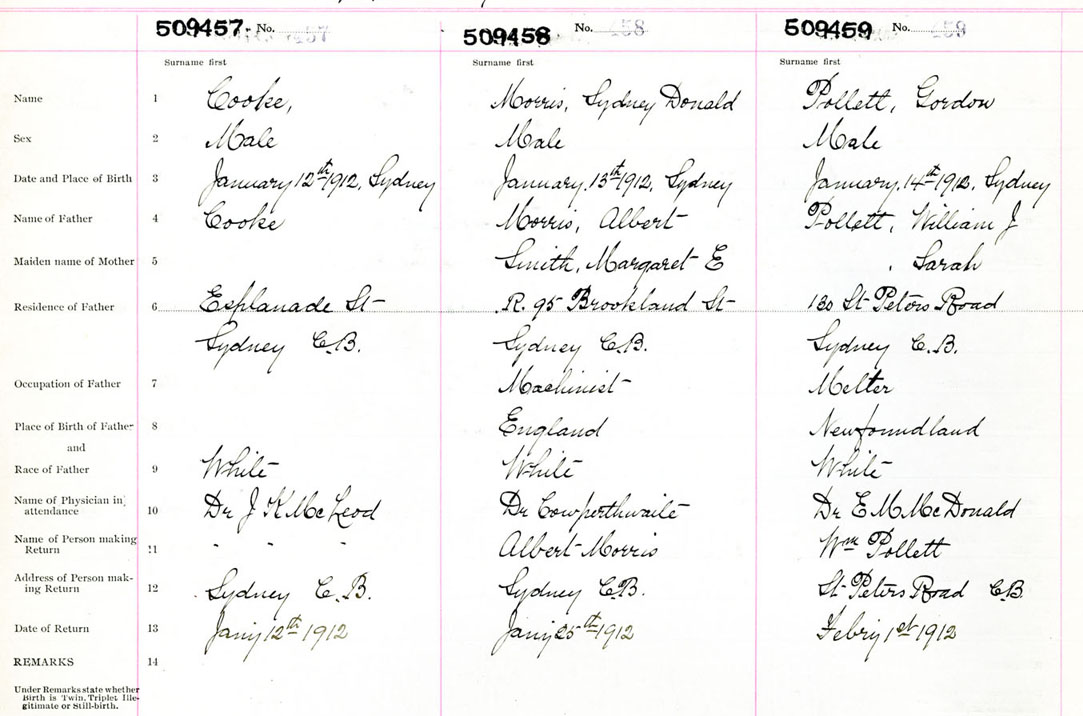 509457 No.
509458 No. 458
509459 No. 459
Surname first Surname first Surname first
Name 1 Cooke, Morris, Sydney Donald Pollett, Gordon
Sex 2 Male Male Male
Date and Place of Birth 3 January 12th 1912, Sydney January, 13th 1912, Sydney January, 14th 1912, Sydney
Name of Father 4 Cooke Morris, Albert Pollett, William J
Maiden name of Mother 5 Smith, Margaret E , Sarah
Residence of Father 6 Esplanade St R. 95 Brookland St 130 St Peters Road
Sydney C.B. Sydney C.B. Sydney C.B.
Occupation of Father 7 Machinist Melter
Place of Birth of Father 8 England Newfoundland
and
Race of Father 9 White White White
Name of Physician in
attendance 10 Dr J K McLeod Dr Cowperthwaite Dr E M McDonald
Name of Person making
Return 11 " " " Albert Morris Wm Pollett
Address of Person mak-
ing Return 12 Sydney C.B. Sydney C.B. St Peters Road C.B
Date of Return 13 Jany 12th 1912 Jany 25th 1912 Febry 1st 1912
REMARKS 14
Under Remarks state whether
Birth is Twin, Triplet, Ille-
gitimate or Still-birth.